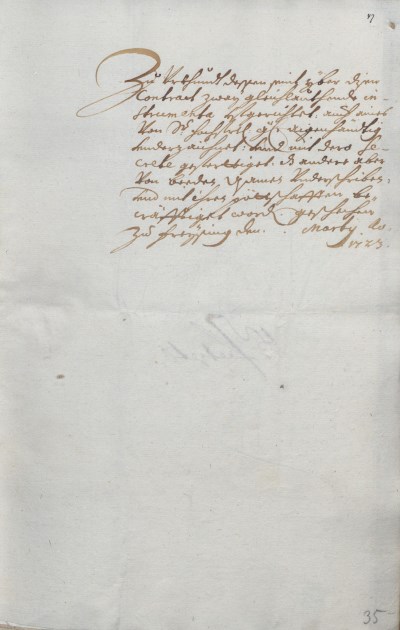 7
Zu Urkhundt dessen seint über disen
Contract zway gleichlauthende in-
strumenta aufgerichtet, auch aines
von Sr hochfrtl. gd. aigenhändtig
underzaichnet, und mit dero Se-
crete gefertiget. das andere aber
von beeden Asames underschriben,
und mit ihren pöttschafften be-
kräfftiget word. geschechen
zu Freysing den . Marty. Ao.
1723.
35